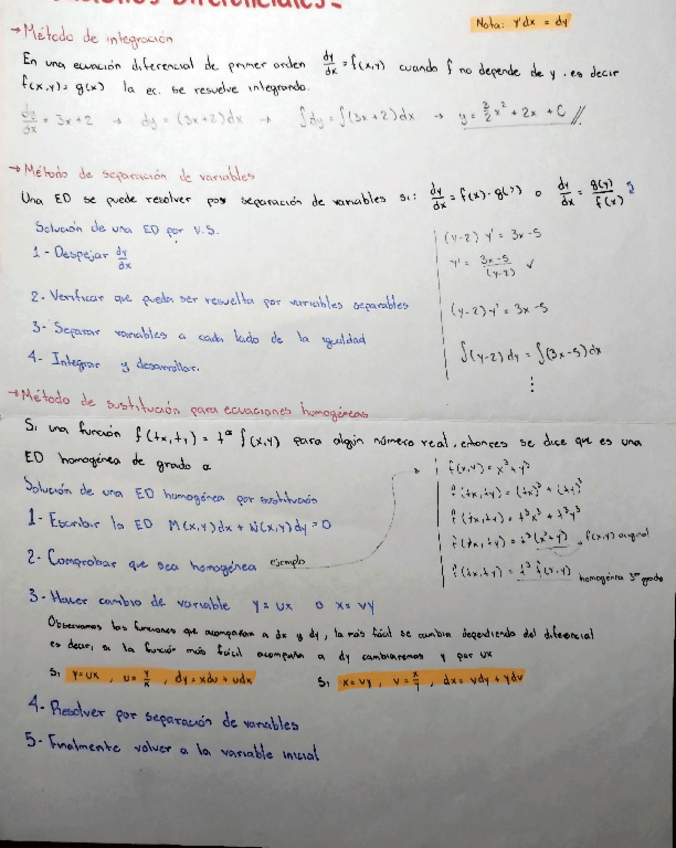 Diferenciales.-
Nota: y'dx = dy
→Método de integración
En una ecuación diferencial de primer orden dy/dx = f(x,y) cuando f no depende de y. es decir
f(x,y) = g(x) la ec. se resuelve integrando.
dy/dx = 3x+2 → dy = (3x+2)dx → ∫dy = ∫(3x+2)dx → y = 3/2 x² + 2x + C //
→Método de separación de variables
Una ED se puede resolver por separación de variables si: dy/dx = f(x)·g(y) o dy/dx = g(y)/f(x)
Solución de una ED por V.S.
1- Despejar dy/dx
2- Verificar que pueda ser resuelta por variables separables
3- Separar variables a cada lado de la igualdad
4- Integrar y desarrollar.
(y-2) y' = 3x-5
y' = 3x-5/(y-2) ✓
(y-2) y' = 3x-5
∫(y-2) dy = ∫(3x-5) dx
⋮
→Método de sustitución para ecuaciones homogéneas
Si una función f(tx,ty) = t^α f(x,y) para algún número real, entonces se dice que es una
ED homogénea de grado α
Solución de una ED homogénea por sustitución
1- Escribir la ED M(x,y)dx + N(x,y)dy = 0
2- Comprobar que sea homogénea ejemplo
f(x,y) = x³+y³
f(tx,ty) = (tx)³ + (ty)³
f(tx,ty) = t³x³ + t³y³
f(tx,ty) = t³(x³+y³) → f(x,y) original
f(tx,ty) = t³ f(x,y) homogénea 3er grado
3- Hacer cambio de variable y = ux o x = vy
Observamos las funciones que acompañan a dx y dy, la más fácil se cambia dependiendo del diferencial
es decir, si la función más fácil acompaña a dy cambiaremos y por ux
Si y=ux , u= y/x , dy = xdu + udx
Si x=vy , v= x/y , dx = vdy + ydv
4- Resolver por separación de variables
5- Finalmente volver a la variable inicial